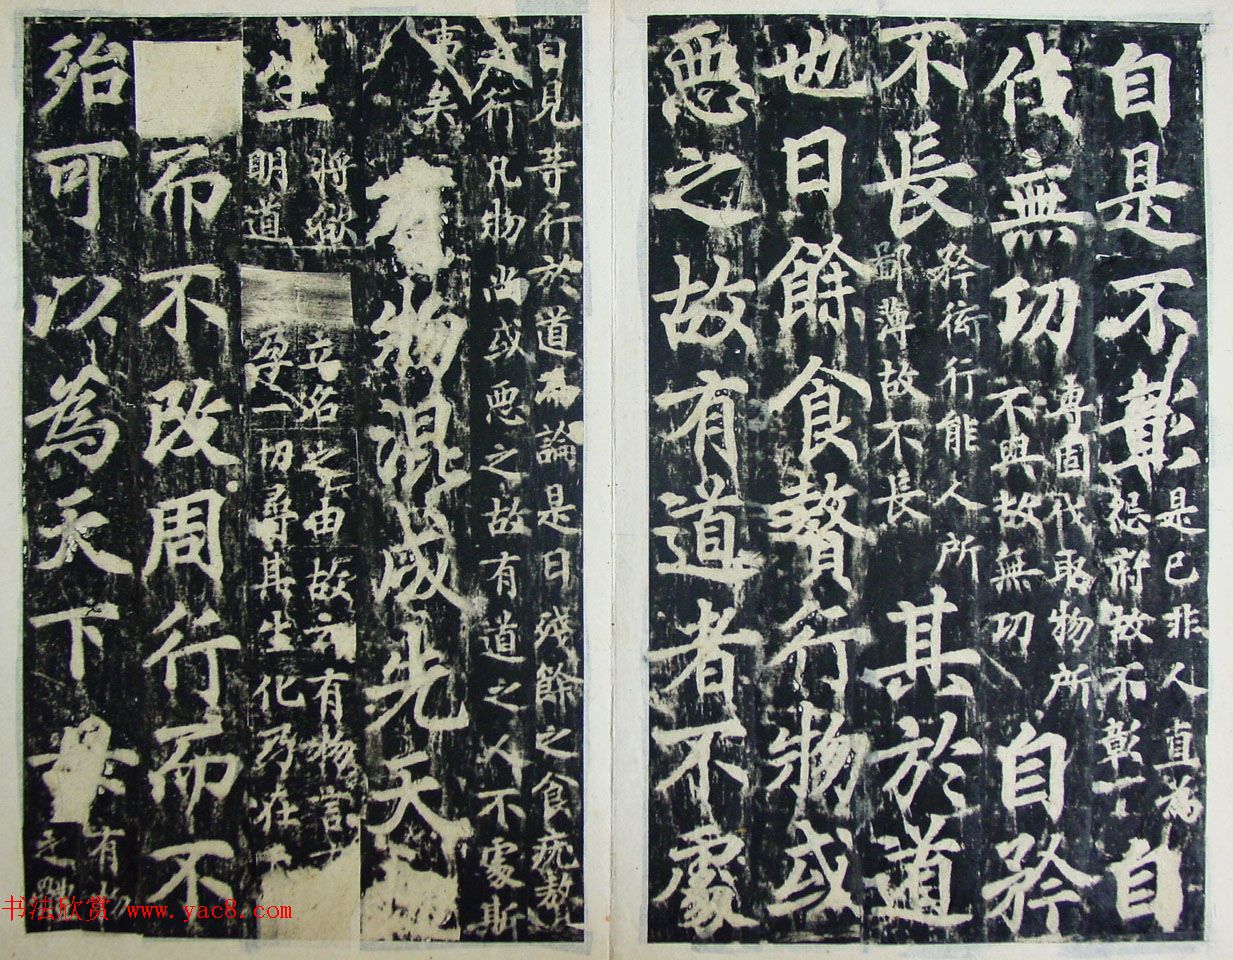 自是不彰是己非人直為怨府故不彰一自
伐無功專固伐取物所不與故無功自矜
不長矜衒行能人所鄙薄故不長其於道
也曰餘食贅行物或
惡之故有道者不處
自見等行於道而論是曰殘餘之食疣贅
之行凡物尚或惡之故有道之人不處斯
事矣
有物混成先天
生將欲明道立名之由故云有物言孕一切尋其生化乃在
而不改周行而不
殆可以為天下有之
书法欣赏 www.yac8.com